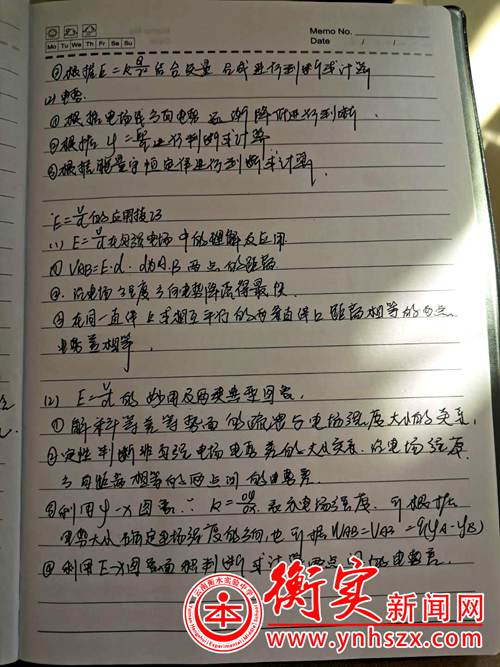 Memo No.
Mo Tu We Th Fr Sa Su
Date /
③根据E=k结合矢量合成进行判断或计算
(2)电势.
①根据电场线方向电势逐渐降低进行判断.
②根据φ=进行判断或计算
③根据能量守恒定律进行判断或计算.
E=U/d的应用技巧
(1) E=U/d在匀强电场中的理解及应用
① UAB=E·d. d为A.B两点的距离
②.沿电场强度方向电势降落得最快.
③在同一直线上或相互平行的两直线上距离相等的两点
电势差相等.
(2) E=U/d的妙用及两类典型图象.
①解释等差等势面的疏密与电场强度大小的关系.
②定性判断非匀强电场电势差的大小关系.沿电场强度
方向距离相等的两点间的电势差
③利用φ-x图象: k=表示电场强度.可根据
电势大小确定电场强度的方向,也可据WAB=UAB=q(φA-φB)
④利用E-x图象面积判断或计算两点间的电势差.
云南衡水实验中学
衡实新闻网
www.ynhszx.com